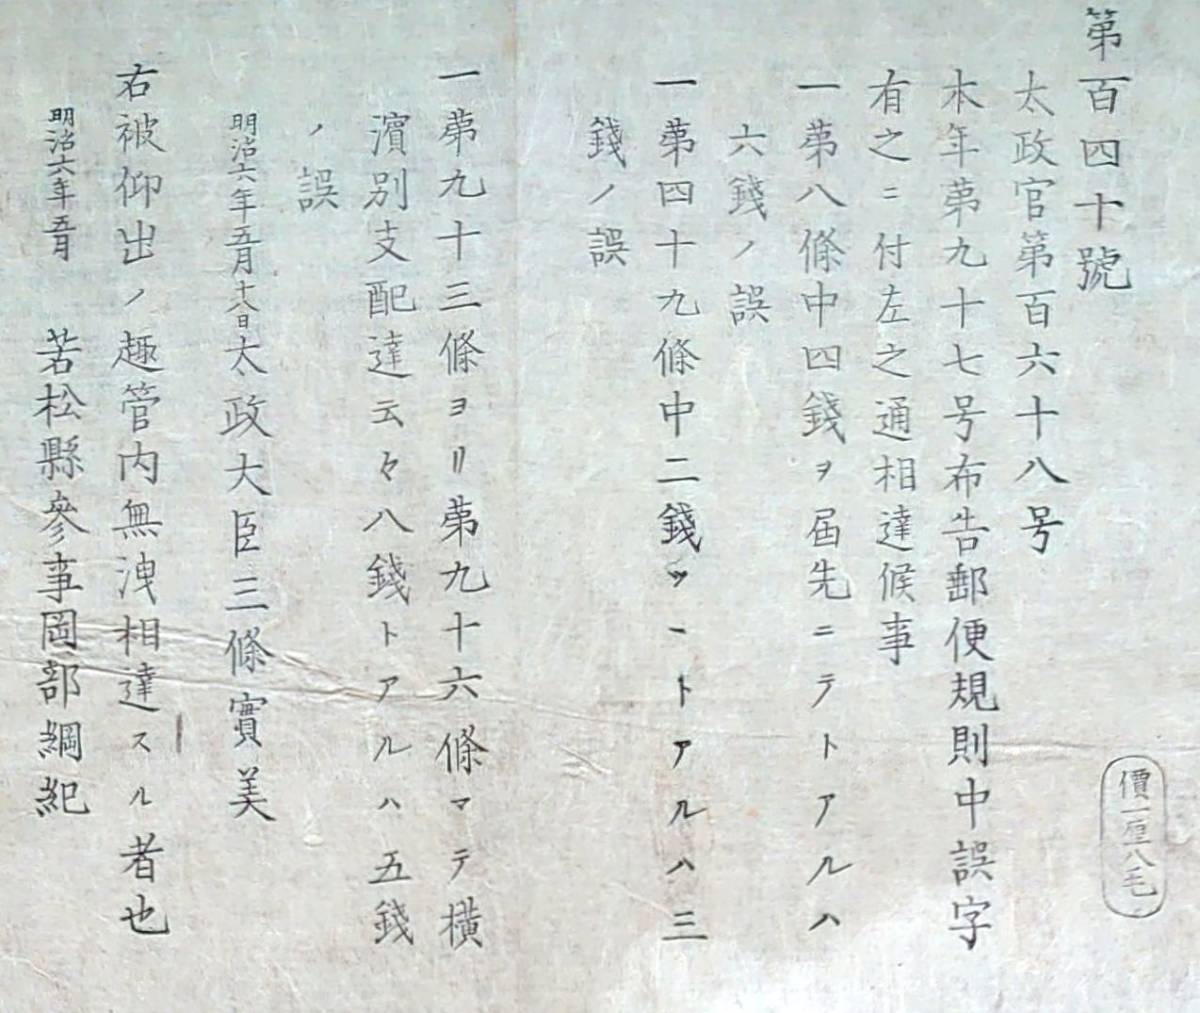 第百四十號
價一厘八毛
太政官第百六十八号
本年第九十七号布告郵便規則中誤字
有之ニ付左之通相達候事
一第八條中四錢ヲ届先ニテトアルハ
六錢ノ誤
一第四十九條中二錢ツヽトアルハ三
錢ノ誤
一第九十三條ヨリ第九十六條マテ横
濱別支配達云々八錢トアルハ五錢
ノ誤
明治六年五月十八日太政大臣三條實美
右被仰出ノ趣管内無洩相達スル者也
明治六年五月 若松縣參事岡部綱紀